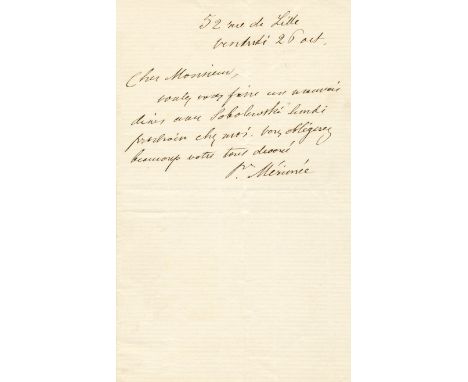 52 rue de Lille
vendredi 26 oct.
Cher Monsieur,
voulez vous faire un mauvais
diner avec Sobolewski lundi
prochain chez moi. vous obligerez
beaucoup votre tout dévoué
Pr Mérimée